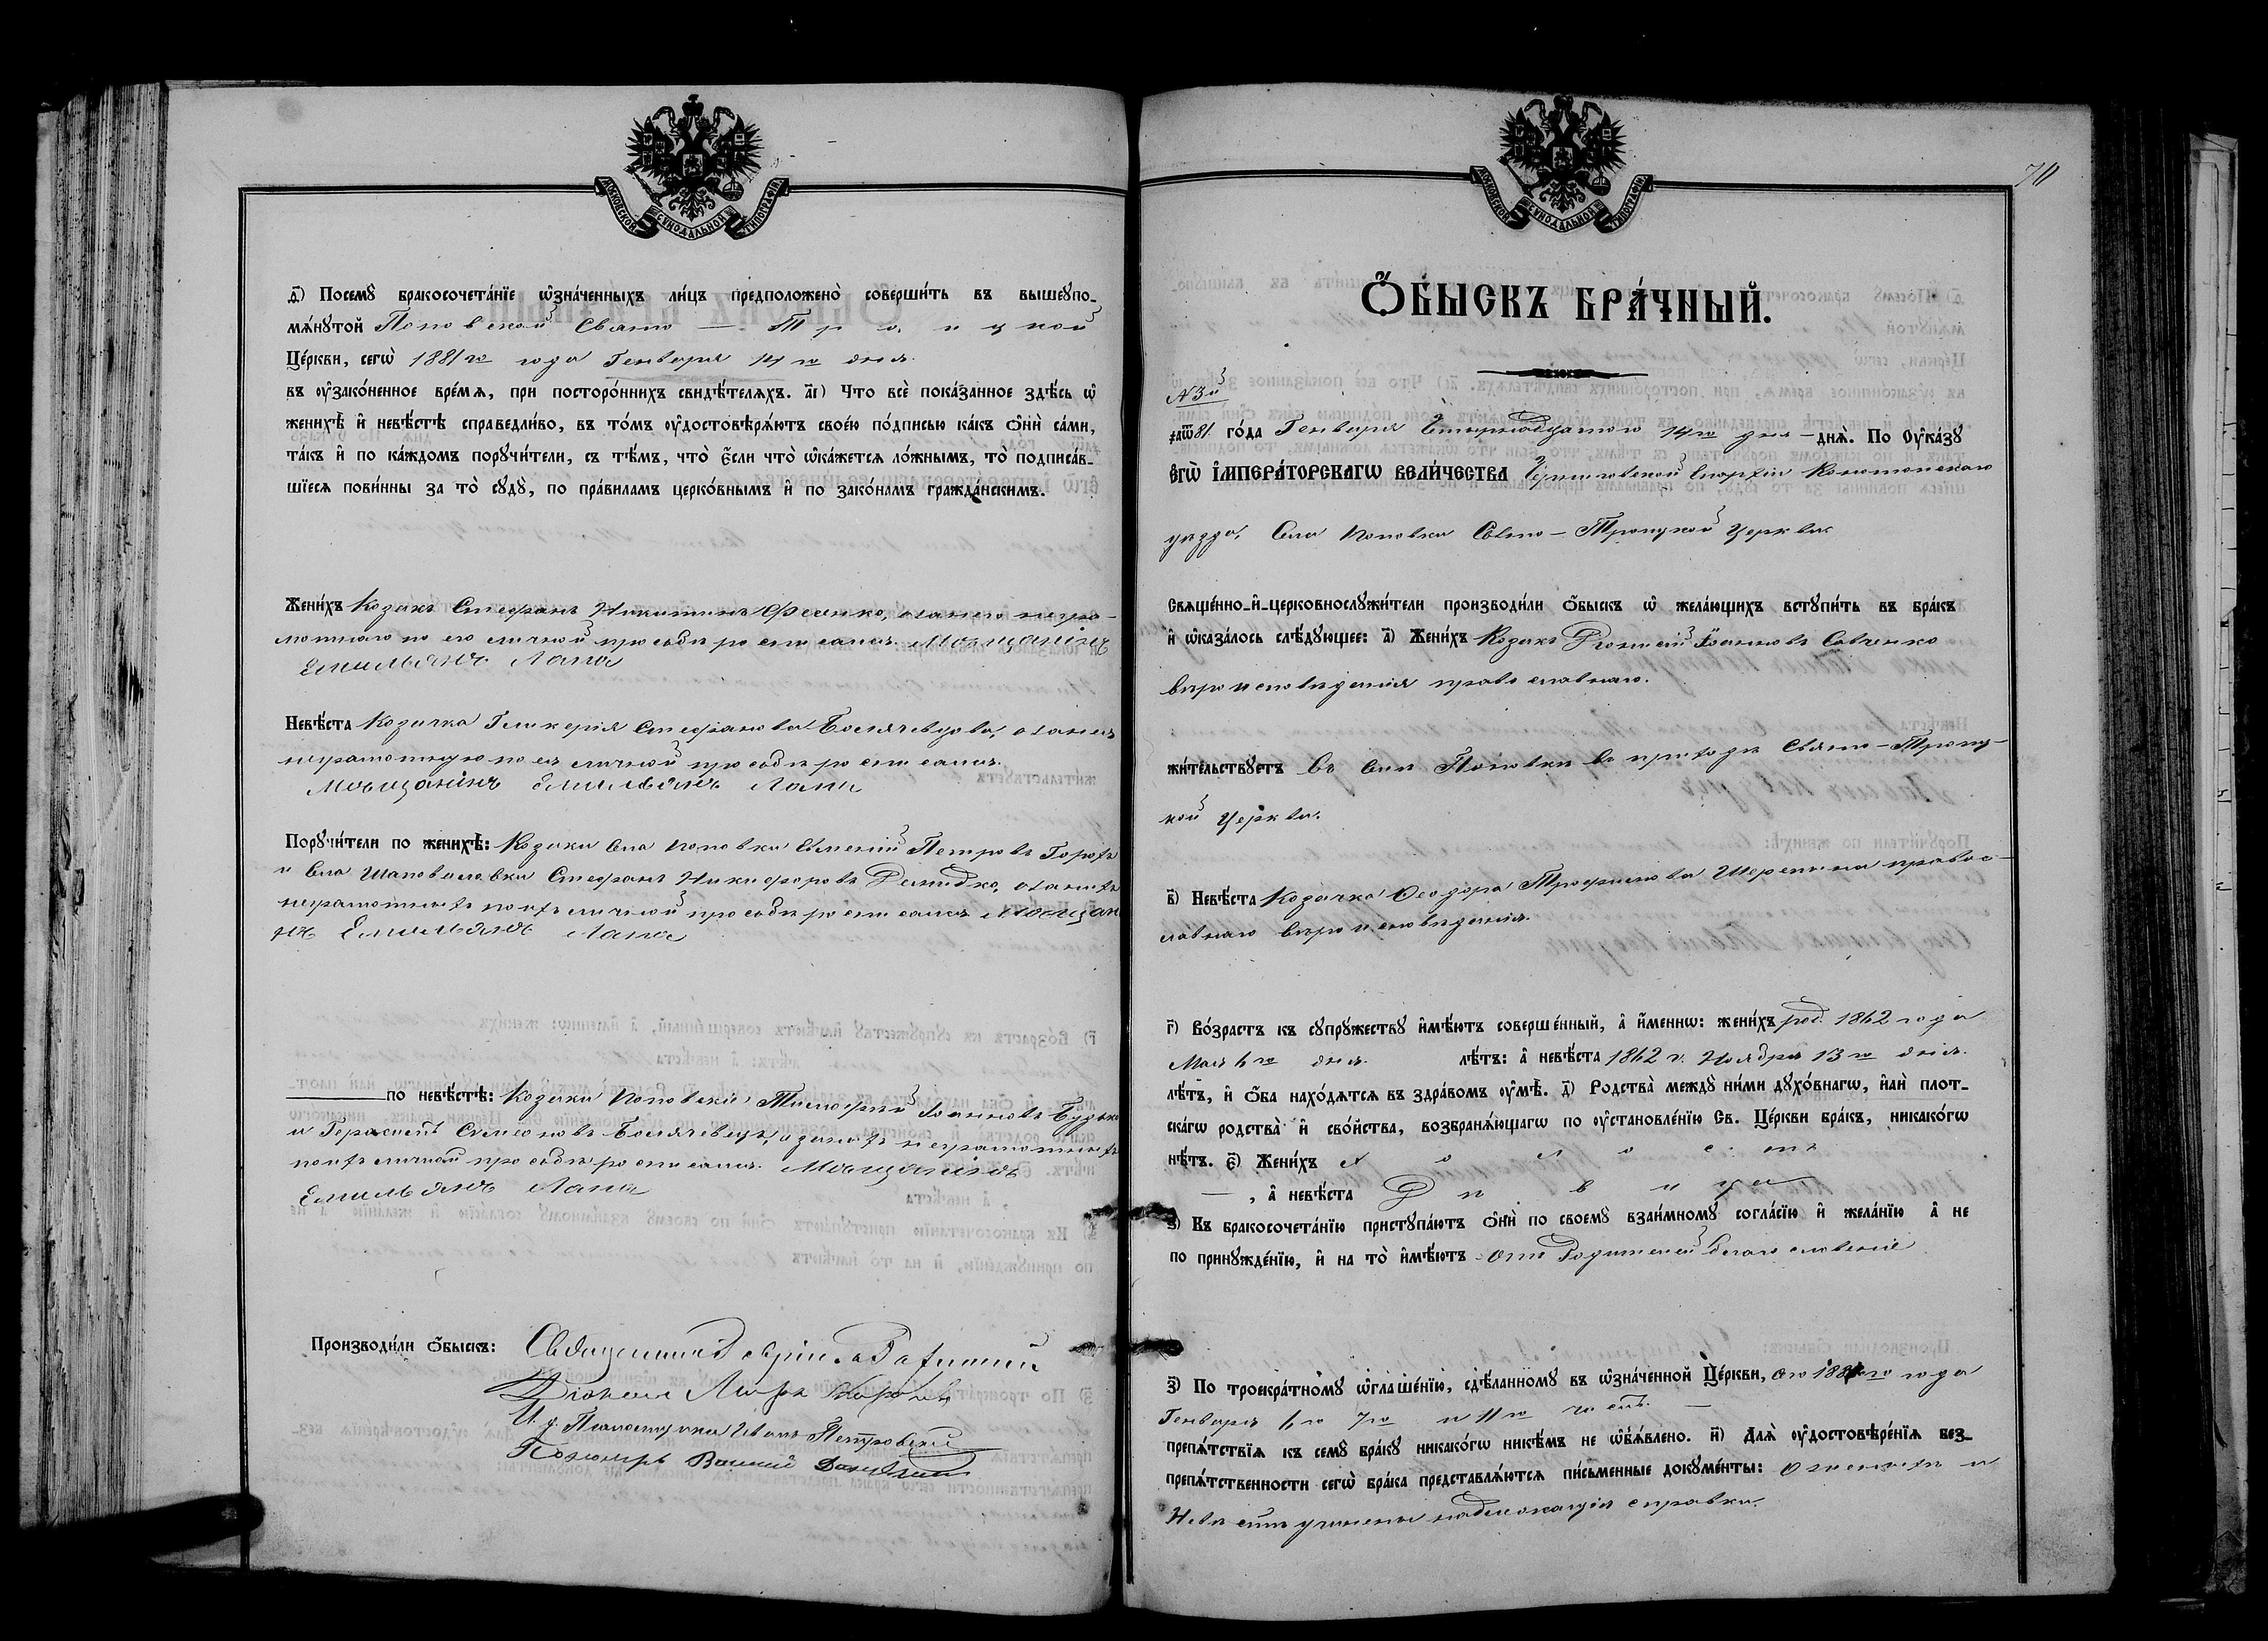 МОСКОВСКОЙ СѴНОДАЛЬНОЙ ТИПОГРАФІИ
д҃) Посемꙋ бракосочета́нїе ѡ҆зна́ченныхъ ли́цъ предположено̀ соверши́ть въ вышеꙋпо-
мѧ́нꙋтой Поповской Свято — Троицкой
Це́ркви, сегѡ̀ 1881го года Генваря 14го дня.
въ ᲂу҆зако́ненное вре́мѧ, при посторо́ннихъ свидѣ́телѧхъ. а҃і) Что всѐ пока́занное здѣ́сь ѡ҆
женихѣ̀ и҆ невѣ́стѣ справедли́во, въ то́мъ ᲂу҆достовѣрѧ́ютъ свое́ю по́дписью ка́къ ѻ҆нѝ са́ми,
та́къ и҆ по ка́ждомъ порꙋчи́тели, съ тѣ́мъ, что̀ є҆́сли что̀ ѡ҆ка́жетсѧ ло́жнымъ, то̀ подписа́в-
шїесѧ пови́нны за то̀ сꙋдꙋ̀, по пра́виламъ церко́внымъ и҆ по зако́намъ гражда́нскимъ.
Жени́хъ Козакъ Стефанъ Никитинъ Фесенко, а за него неграмотнаго по его личной просьбѣ росписался. Мѣщанинъ
Емильянъ Лапа
Невѣ́ста Козачка Гликерія Стефанова
неграмотную по ея личной просьбѣ росписался.
Мѣщанинъ Емильянъ Лапа
Порꙋчи́тели по женихѣ̀: Козаки Села Поповки Евменій Петровъ Горохъ
и Села Шаповаловки Стефанъ Никифоровъ Демидко, а за нихъ
неграмотныхъ по ихъ личной просьбѣ росписался Мѣщан
нъ Емильянъ Лапа
по невѣ́стѣ: Козаки Поповскіе Тимофей Іоанновъ
и Герасимъ Симеоновъ а за нихъ неграмотныхъ
по ихъ личной просьбѣ росписался. Мѣщанинъ
Емильянъ Лапа
Производи́ли ѻ҆́быскъ: Священникъ
Діаконъ
И. д. Псаломщика Иванъ Петровскій
Пономарь
МОСКОВСКОЙ СѴНОДАЛЬНОЙ ТИПОГРАФІИ
70
Ѻ҆́БЫСКЪ БРА́ЧНЫЙ.
№ 3й
҂аѿ81. го́да Генваря Четырнадцатого 14го дня — днѧ̀. По Оу҆ка́зꙋ
Є҆гѡ̀ І҆МПЕРА́ТОРСКАГѠ ВЕЛИ́ЧЕСТВА Черниговской Епархіи Конотопскаго
уѣзда, Села Поповки Свято — Троицкой Церкви.
Свѧще́нно-и҆-церковнослꙋжи́тели производи́ли ѻ҆́быскъ ѡ҆ жела́ющихъ встꙋпи́ть въ бра́къ
и҆ ѡ҆каза́лось слѣ́дꙋющее: а҃) Жени́хъ Козакъ Діонисій Іоанновъ Савченко
вѣроисповѣданія православнаго.
жи́тельствꙋетъ Въ Селѣ Поповки въ приходѣ Свято — Троиц-
кой Церкви.
в҃) Невѣ́ста Козачка Феодора Трофимова правос-
лавнаго вѣроисповѣданія.
г҃) Во́зрастъ къ сꙋпрꙋ́жествꙋ и҆мѣ́ютъ соверше́нный, а҆ и҆́меннѡ: жени́хъ род. 1862 года
Мая 6го дня. лѣ́тъ: а҆ невѣ́ста 1862 г. Ноября 13го дня.
лѣ́тъ, и҆ ѻ҆́ба нахо́дѧтсѧ въ здра́вомъ ᲂу҆мѣ̀. д҃) Родства̀ междꙋ̀ ни́ми дꙋхо́внагѡ, и҆лѝ плот-
ска́гѡ родства̀ и҆ сво́йства, возбранѧ́ющагѡ по ᲂу҆становле́нїю Св. Це́ркви бра́къ, никако́гѡ
нѣ́тъ. є҃) Жени́хъ Холостъ
—, а҆ невѣ́ста Дѣвица
ѕ҃) Къ бракосочета́нїю пристꙋпа́ютъ ѻ҆нѝ по своемꙋ̀ взаи́мномꙋ согла́сїю и҆ жела́нїю а҆ не
по принꙋжде́нїю, и҆ на то̀ и҆мѣ́ютъ отъ Родителей благословеніе
з҃) По троекра́тномꙋ ѡ҆глаше́нїю, сдѣ́ланномꙋ въ ѡ҆зна́ченной Це́ркви, сего 1881го года
Генваря 6го 7го и 11го чиселъ. —
препѧ́тствїѧ къ семꙋ̀ бра́кꙋ никако́гѡ никѣ́мъ не ѡ҆б̾ѧ́влено. и҃) Длѧ̀ ᲂу҆достовѣре́нїѧ без-
препѧ́тственности сегѡ̀ бра́ка представлѧ́ютсѧ пи́сьменные докꙋме́нты: О женихѣ и
Невѣстѣ учинены надлежащія справки.